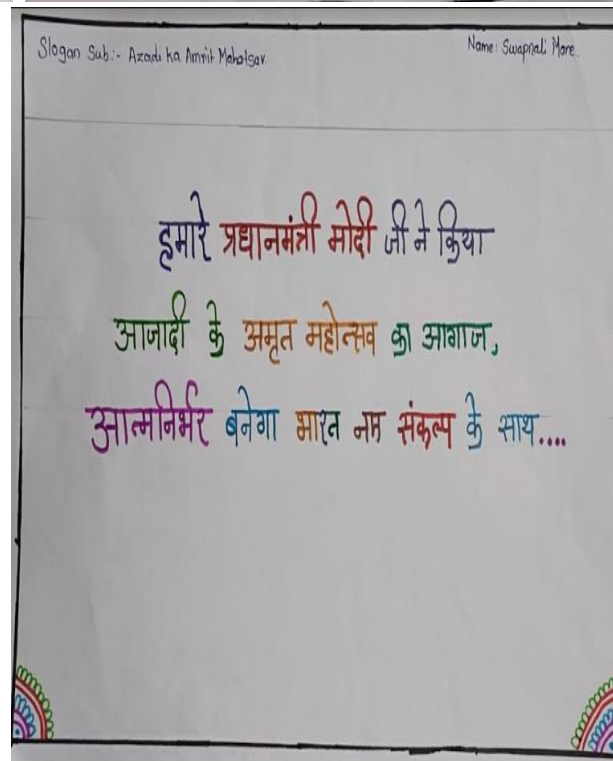 Slogan Sub:- Azadi ka Amrit Mahotsav.
Name: Swapnali More.
हमारे प्रधानमंत्री मोदी जी ने किया
आजादी के अमृत महोत्सव का आगाज,
आत्मनिर्भर बनेगा भारत नए संकल्प के साथ....